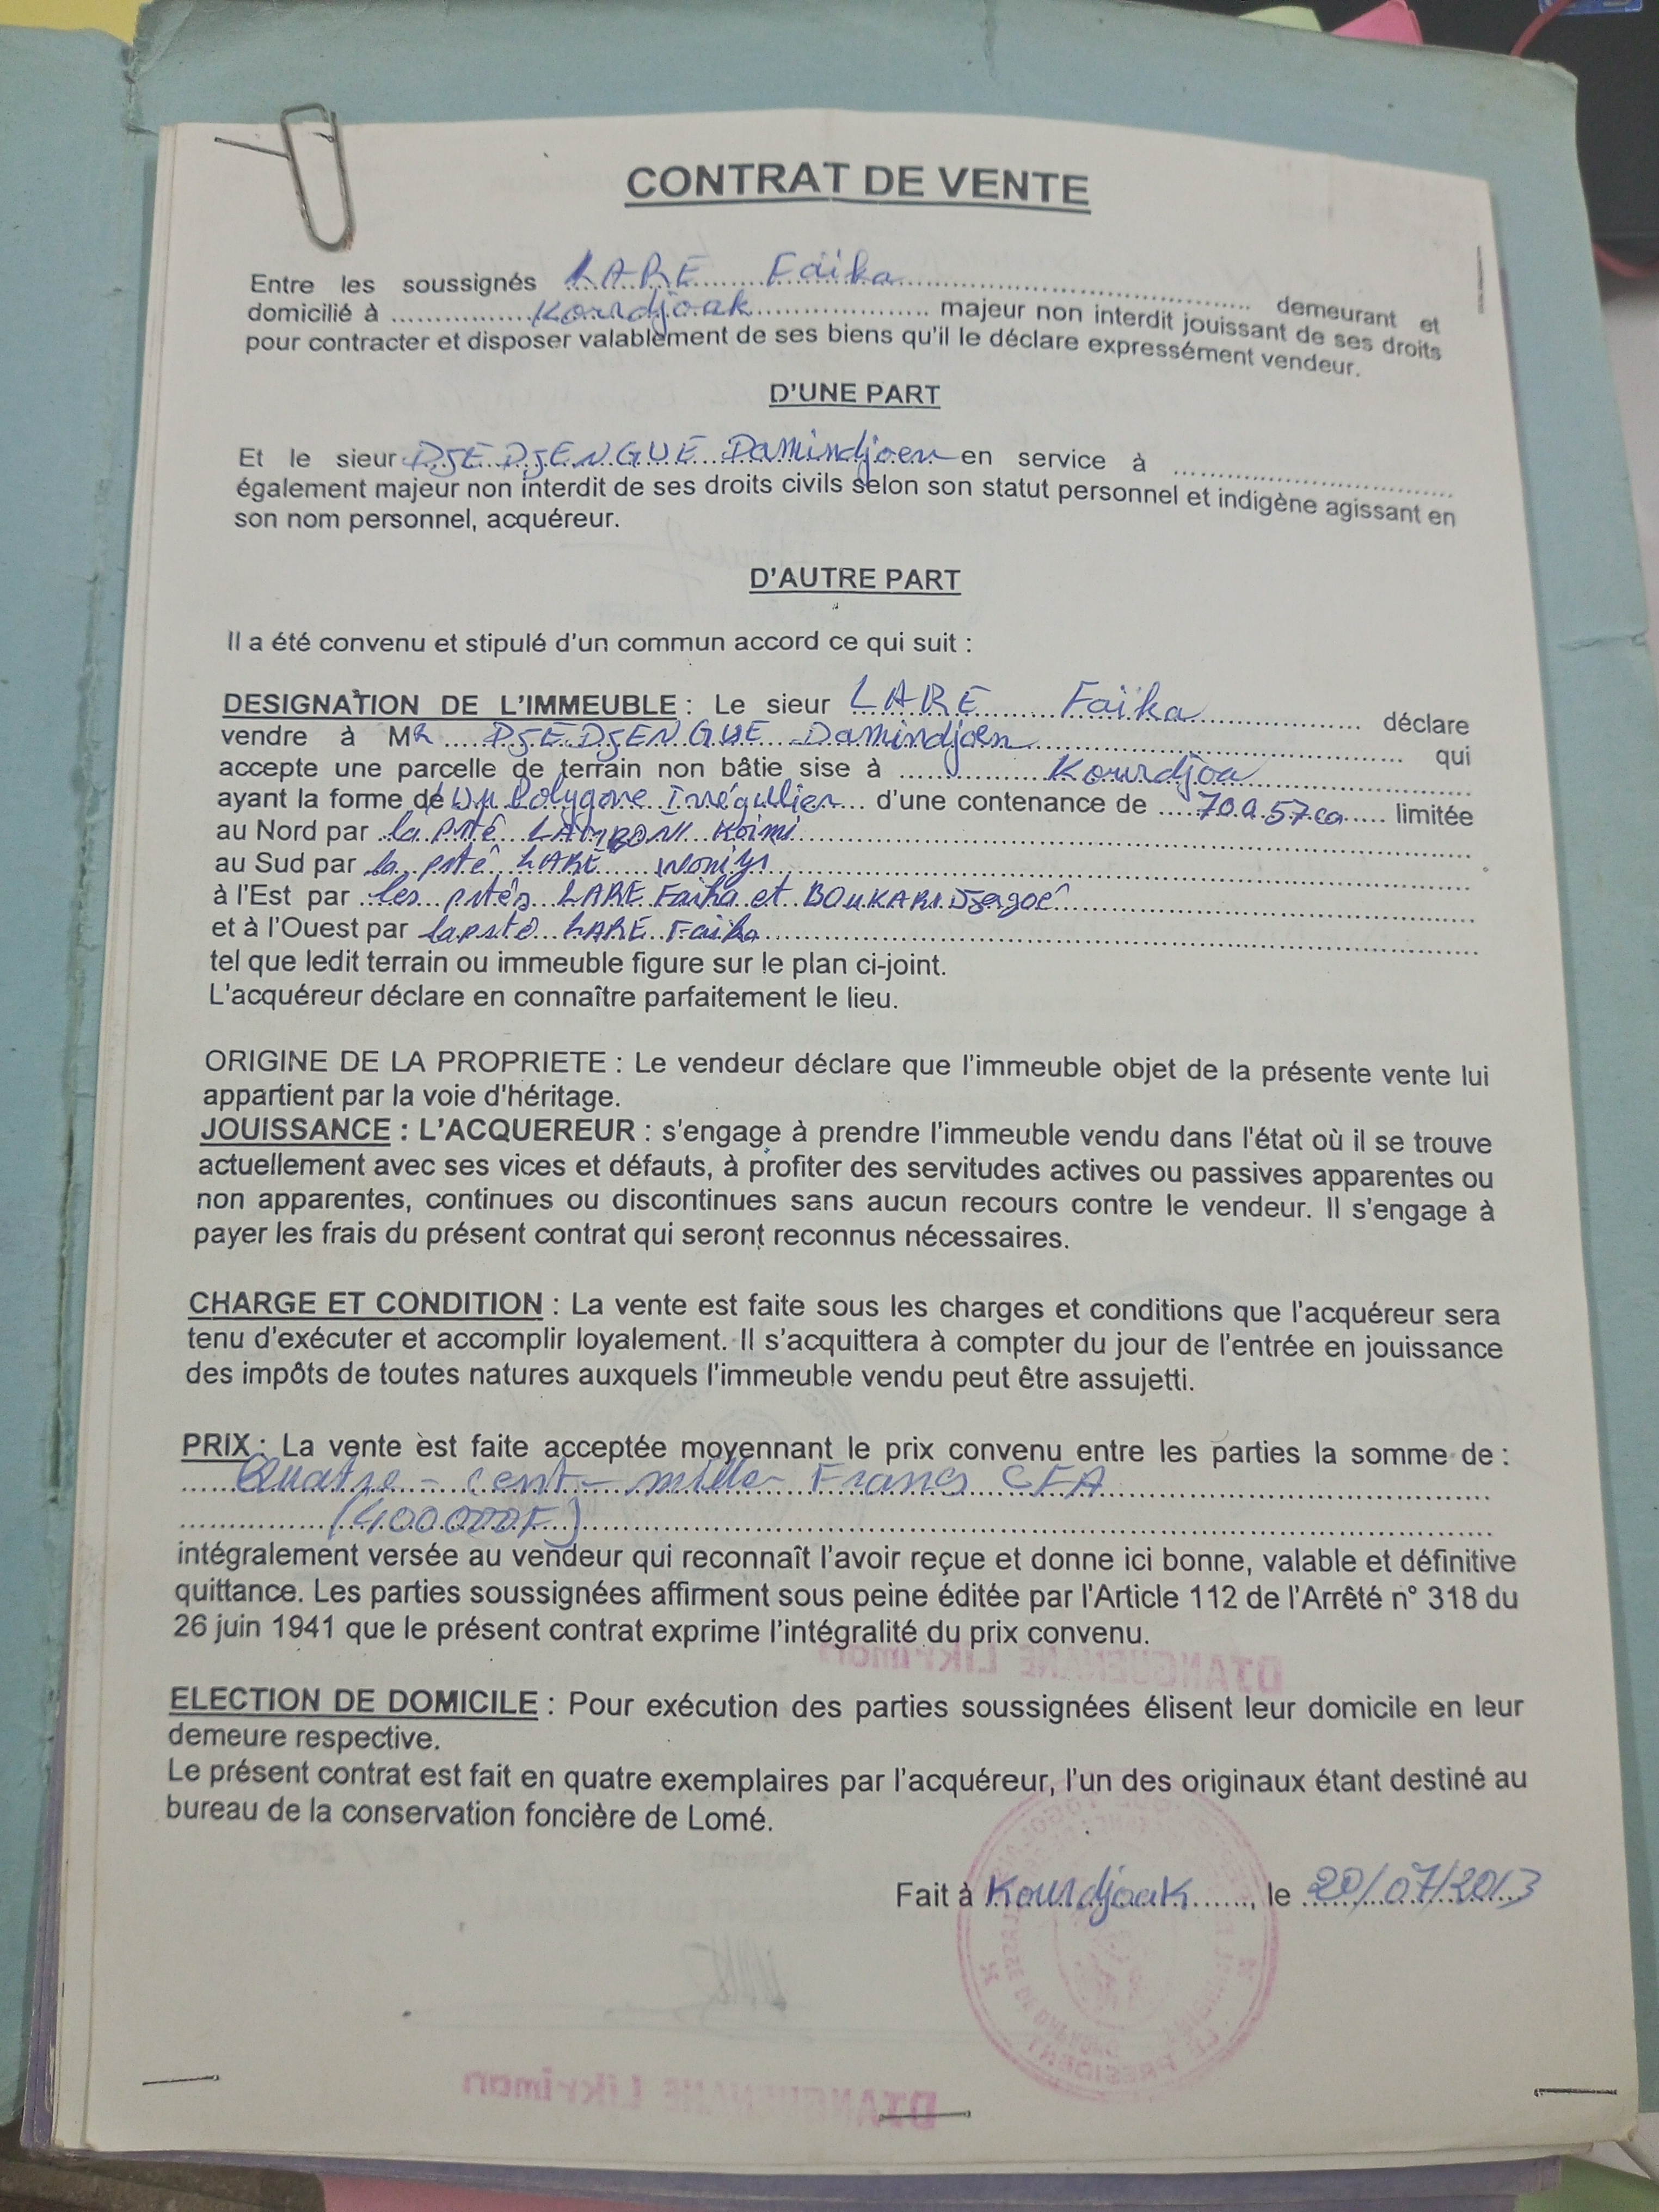 CONTRAT DE VENTE
Entre les soussignés LARE Faïka demeurant et
domicilié à Kourdjoak majeur non interdit jouissant de ses droits
pour contracter et disposer valablement de ses biens qu'il le déclare expressément vendeur.
D'UNE PART
Et le sieur DJEDJENGUE Damindjoen en service à
également majeur non interdit de ses droits civils selon son statut personnel et indigène agissant en
son nom personnel, acquéreur.
D'AUTRE PART
Il a été convenu et stipulé d'un commun accord ce qui suit :
DESIGNATION DE L'IMMEUBLE : Le sieur LARE Faïka déclare
vendre à MR DJEDJENGUE Damindjoen qui
accepte une parcelle de terrain non bâtie sise à Kourdjoa
ayant la forme de Un Polygone Irrégullier d'une contenance de 70a57ca limitée
au Nord par la pté LAMBONI Koimi
au Sud par la pté LARE
à l'Est par les ptés LARE Faïka et BOUKARI
et à l'Ouest par la pté LARE Faïka
tel que ledit terrain ou immeuble figure sur le plan ci-joint.
L'acquéreur déclare en connaître parfaitement le lieu.
ORIGINE DE LA PROPRIETE : Le vendeur déclare que l'immeuble objet de la présente vente lui
appartient par la voie d'héritage.
JOUISSANCE : L'ACQUEREUR : s'engage à prendre l'immeuble vendu dans l'état où il se trouve
actuellement avec ses vices et défauts, à profiter des servitudes actives ou passives apparentes ou
non apparentes, continues ou discontinues sans aucun recours contre le vendeur. Il s'engage à
payer les frais du présent contrat qui seront reconnus nécessaires.
CHARGE ET CONDITION : La vente est faite sous les charges et conditions que l'acquéreur sera
tenu d'exécuter et accomplir loyalement. Il s'acquittera à compter du jour de l'entrée en jouissance
des impôts de toutes natures auxquels l'immeuble vendu peut être assujetti.
PRIX : La vente est faite acceptée moyennant le prix convenu entre les parties la somme de :
Quatre - cent - mille Francs CFA
(400000F)
intégralement versée au vendeur qui reconnaît l'avoir reçue et donne ici bonne, valable et définitive
quittance. Les parties soussignées affirment sous peine éditée par l'Article 112 de l'Arrêté n° 318 du
26 juin 1941 que le présent contrat exprime l'intégralité du prix convenu.
DTANGUENANE Likriman
ELECTION DE DOMICILE : Pour exécution des parties soussignées élisent leur domicile en leur
demeure respective.
Le présent contrat est fait en quatre exemplaires par l'acquéreur, l'un des originaux étant destiné au
bureau de la conservation foncière de Lomé.
Fait à Kourdjoak, le 20/07/2013
LE PRESIDENT
DTANGUENANE Likriman